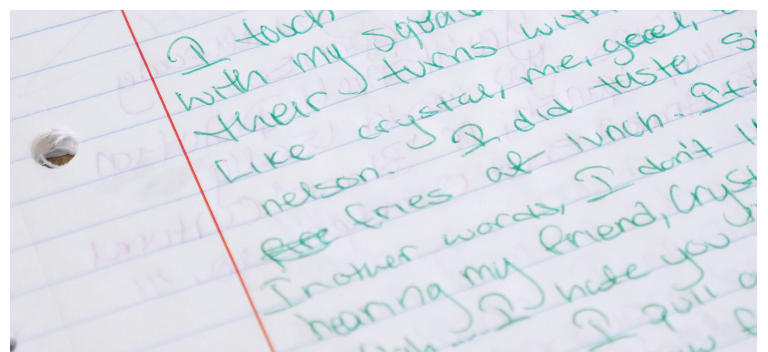 I touch
with my squa
their turns with
Like crystal, me, geeel,
nelson. I did taste s
fries at lunch. It
In other words, I don't l
hearing my friend, Crys
I hate you
I pull